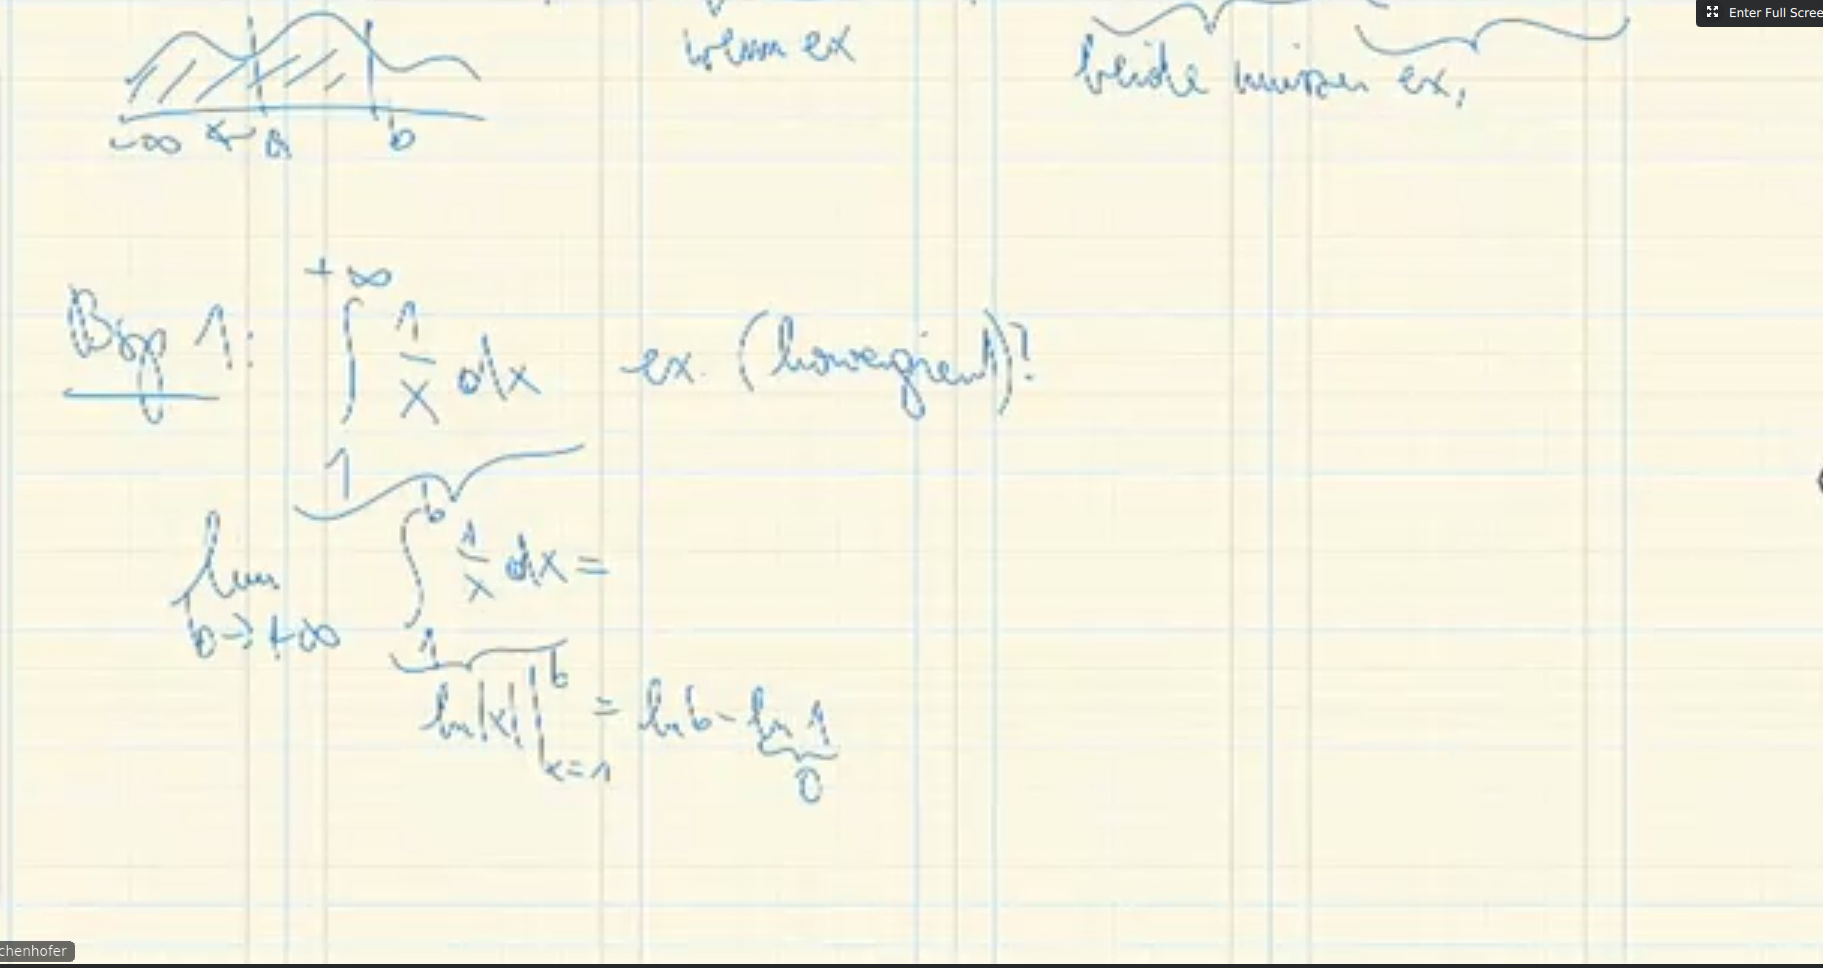 Enter Full Scree
wenn ex
beide müssen ex.
-∞ ← a b
Bsp 1: ∫₁^{+∞} 1/x dx ex. (konvergient)?
lim b→+∞ ∫₁^b 1/x dx =
ln|x| |_{x=1}^b = ln b - ln 1
0
chenhofer